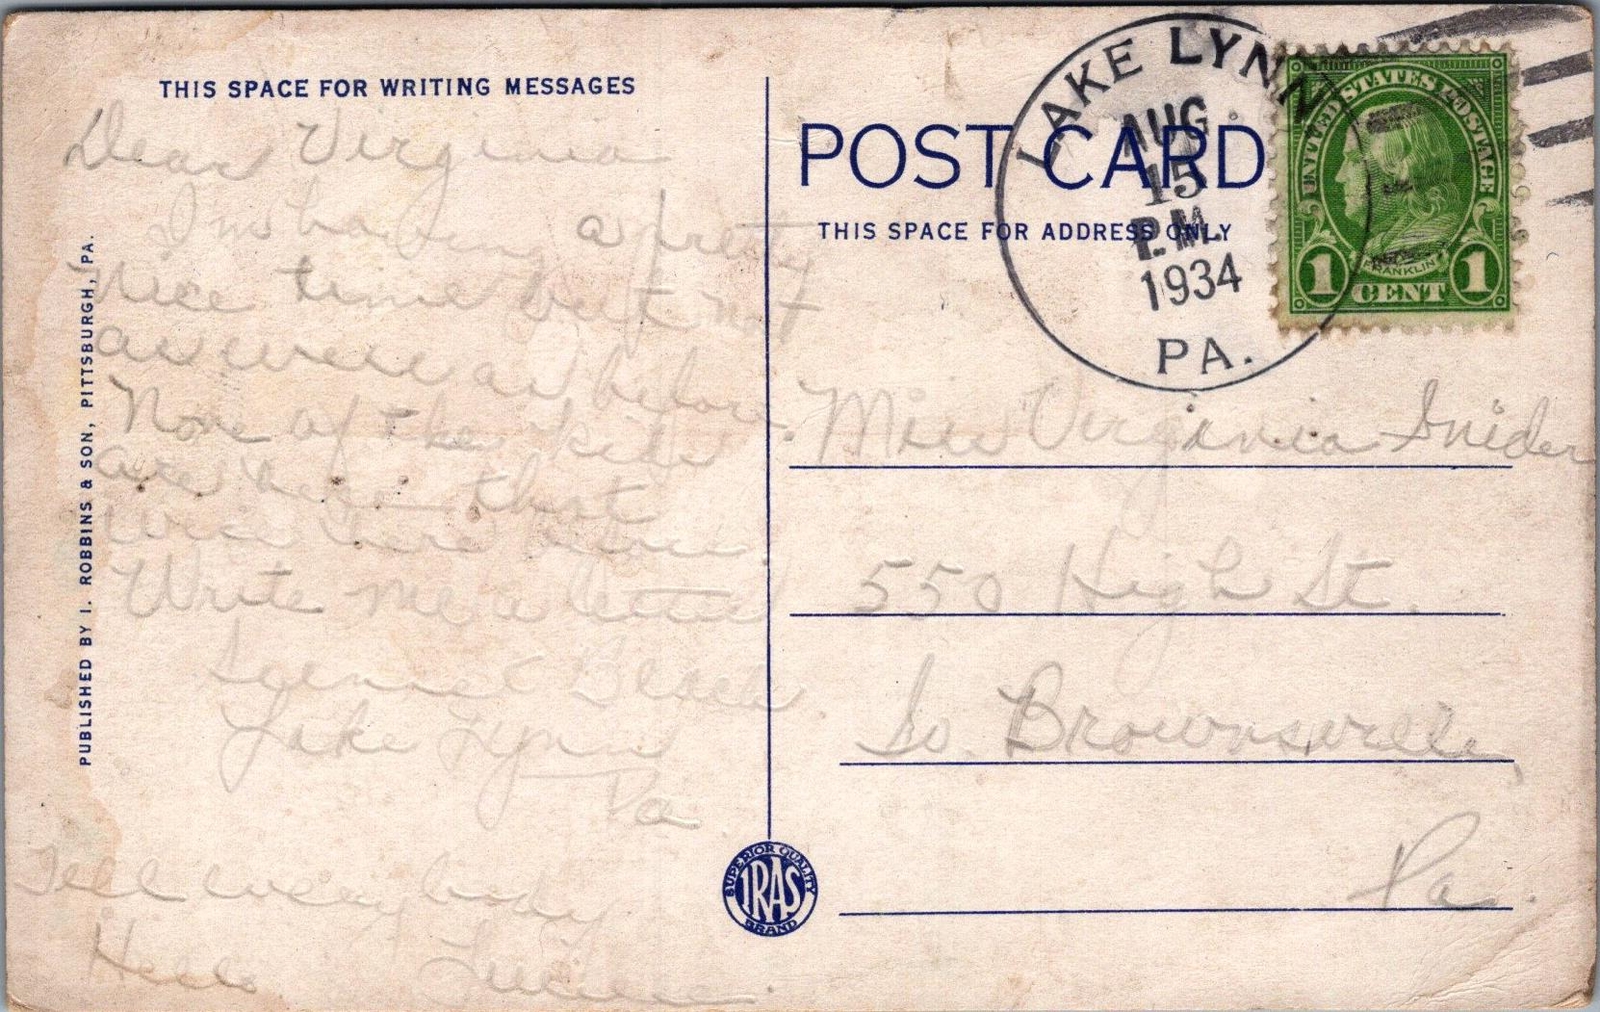 THIS SPACE FOR WRITING MESSAGES
Dear Virginia
I'm having a pretty
nice time but not
as well as before.
None of the kids
are here that
were here before.
Write me a letter
Lake Lynn
Pa.
Tell everybody
Hello
PUBLISHED BY I. ROBBINS & SON, PITTSBURGH, PA.
SUPERIOR QUALITY
IRAS
BRAND
POST CARD
THIS SPACE FOR ADDRESS ONLY
LAKE LYNN
AUG
15
P.M.
1934
PA.
UNITED STATES POSTAGE
FRANKLIN
1 CENT 1
Miss Virginia Snider
550 High St.
So. Brownsville,
Pa.